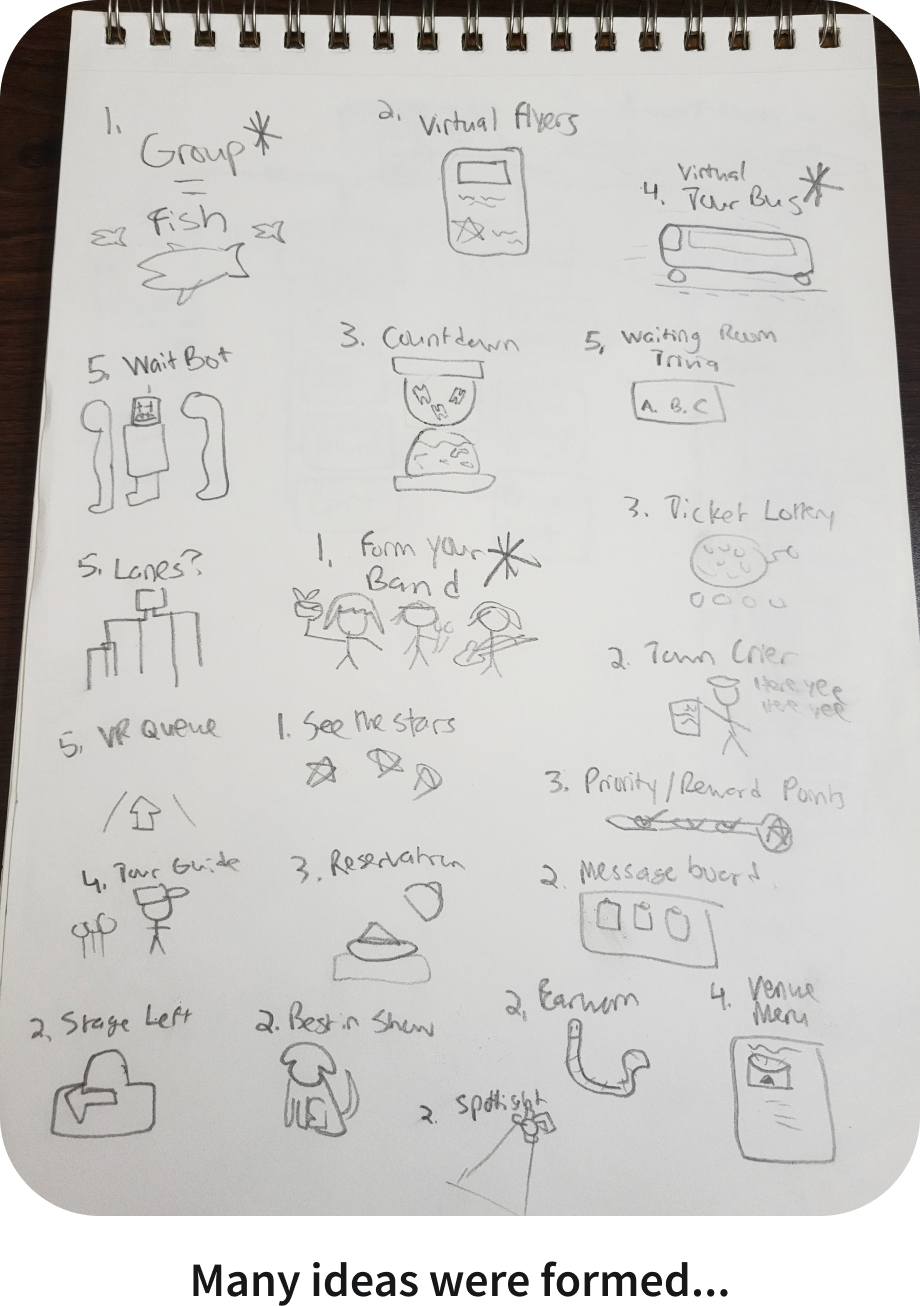 1.
Group*
=
fish
2. Virtual flyers
Virtual
4. Tour Bus*
5. WaitBot
3. Countdown
5, Waiting Room
Trivia
A. B. C
5. Lanes?
1. Form your*
Band
3. Ticket Lottery
2. Town Crier
Here yee
Here yee
5, VR Queue
1. See the stars
3. Priority/Reward Points
4. Tour Guide
3. Reservation
2. Message board.
2, Stage Left
2. Best in Show
2, Earworm
4. Venue
Menu
2. Spotlight
Many ideas were formed...